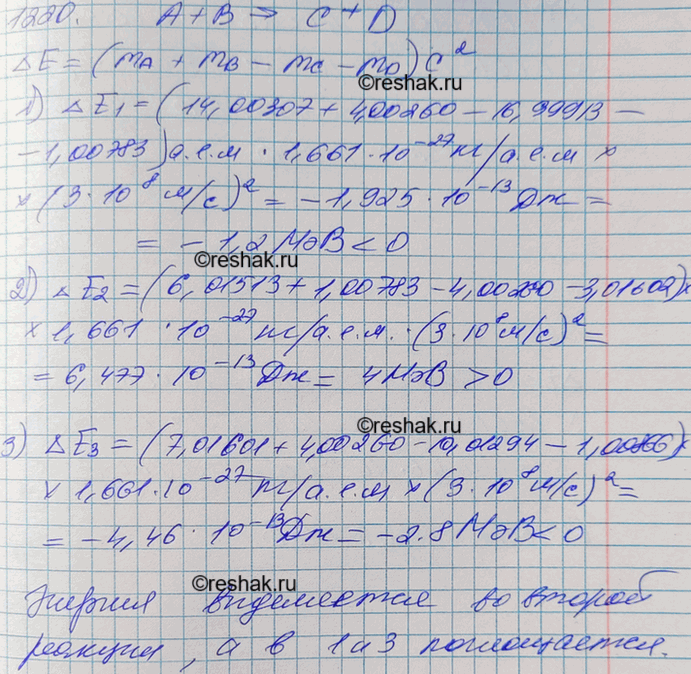 1220. A + B → C + D
ΔE = (mA + mB − mC − mD) C²
©reshak.ru
1) ΔE1 = (14,00307 + 4,00260 − 16,99913 −
− 1,00783) а.е.м · 1,661 · 10⁻²⁷ кг/а.е.м ×
× (3 · 10⁸ м/с)² = −1,925 · 10⁻¹³ Дж =
= −1,2 МэВ < 0
©reshak.ru
2) ΔE2 = (6,01513 + 1,00783 − 4,00260 − 3,01602) ×
× 1,661 · 10⁻²⁷ кг/а.е.м. · (3 · 10⁸ м/с)² =
= 6,477 · 10⁻¹³ Дж = 4 МэВ > 0
©reshak.ru
3) ΔE3 = (7,01601 + 4,00260 − 10,01294 − 1,00866) ×
× 1,661 · 10⁻²⁷ кг/а.е.м × (3 · 10⁸ м/с)² =
= −4,46 · 10⁻¹³ Дж = −2.8 МэВ < 0
©reshak.ru
Энергия выделяется во второй
реакции, а в 1 и 3 поглощается.